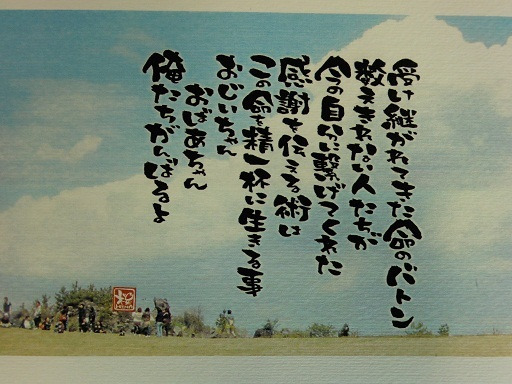 受け継がれてきた命のバトン
数えきれない人たちが
今の自分に繋げてくれた
感謝を伝える術は
この命を精一杯に生きる事
おじいちゃん
おばあちゃん
俺たちがんばるよ